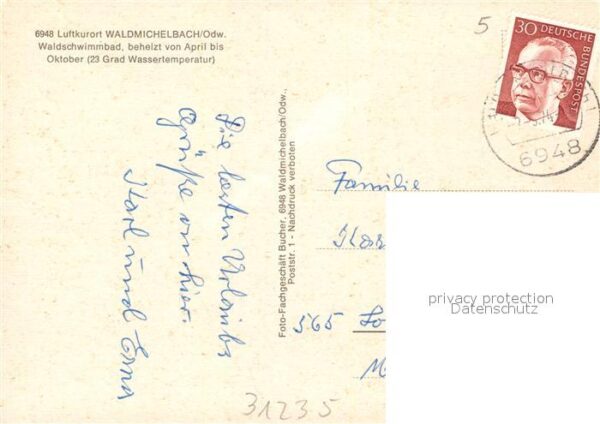 6948 Luftkurort WALDMICHELBACH/Odw.
Waldschwimmbad, beheizt von April bis
Oktober (23 Grad Wassertemperatur)
5
30 DEUTSCHE BUNDESPOST
6948
Die besten Urlaubs
Grüße von hier.
Karl und Erna
Foto-Fachgeschäft Bucher, 6948 Waldmichelbach/Odw.,
Poststr. 1 - Nachdruck verboten
Familie
565
privacy protection
Datenschutz
31235